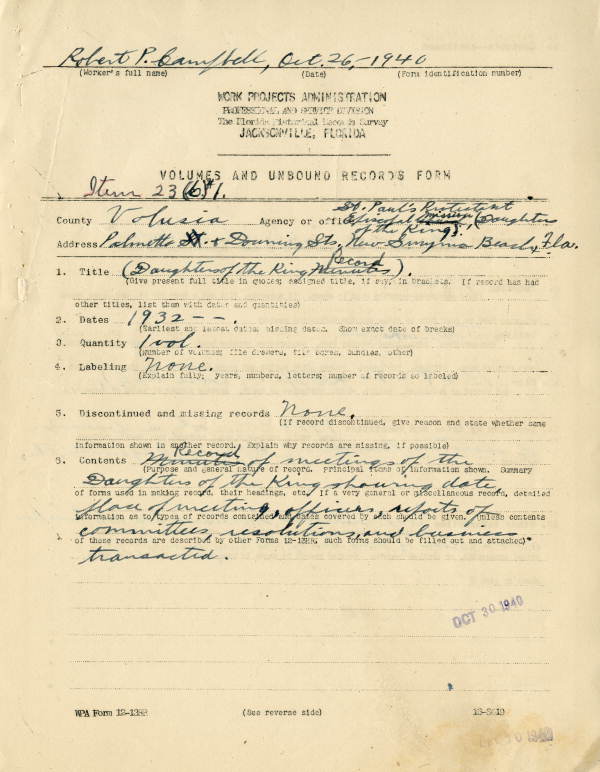 Robert P. Campbell, Oct. 26, - 1940
(Worker's full name) (Date) (Form identification number)
WORK PROJECTS ADMINISTRATION
PROFESSIONAL AND SERVICE DIVISION
The Florida Historical Records Survey
JACKSONVILLE, FLORIDA
VOLUMES AND UNBOUND RECORDS FORM
Item 23 (6) #1.
St. Paul's Protestent
County Volusia Agency or office Episcopal Mission, (Daughters
of the King).
Address Palmetto St. & Downing Sts, New Smyrna Beach, Fla.
Record
1. Title (Daughters of the King Minutes).
(Give present full title in quotes; assigned title, if any, in brackets. If record has had
other titles, list them with dates and quantities)
2. Dates 1932 - - .
(Earliest and latest dates; missing dates. Show exact date of breaks)
3. Quantity 1 vol.
(Number of volumes; file drawers, file boxes, bundles, other)
4. Labeling None.
(Explain fully; years, numbers, letters; number of records so labeled)
5. Discontinued and missing records None.
(If record discontinued, give reason and state whether same
information shown in another record. Explain why records are missing, if possible)
Record
6. Contents Minutes of meetings of the
(Purpose and general nature of record. Principal items of information shown. Summary
Daughters of the King showing date,
of forms used in making record, their headings, etc. If a very general or miscellaneous record, detailed
place of meeting, officers, reports of
information as to types of records contained and dates covered by each should be given. Unless contents
committees, resolutions, and business
of these records are described by other Forms 12-13HR, such forms should be filled out and attached)
transacted.
OCT 30 1940
WPA Form 12-13HR (See reverse side)